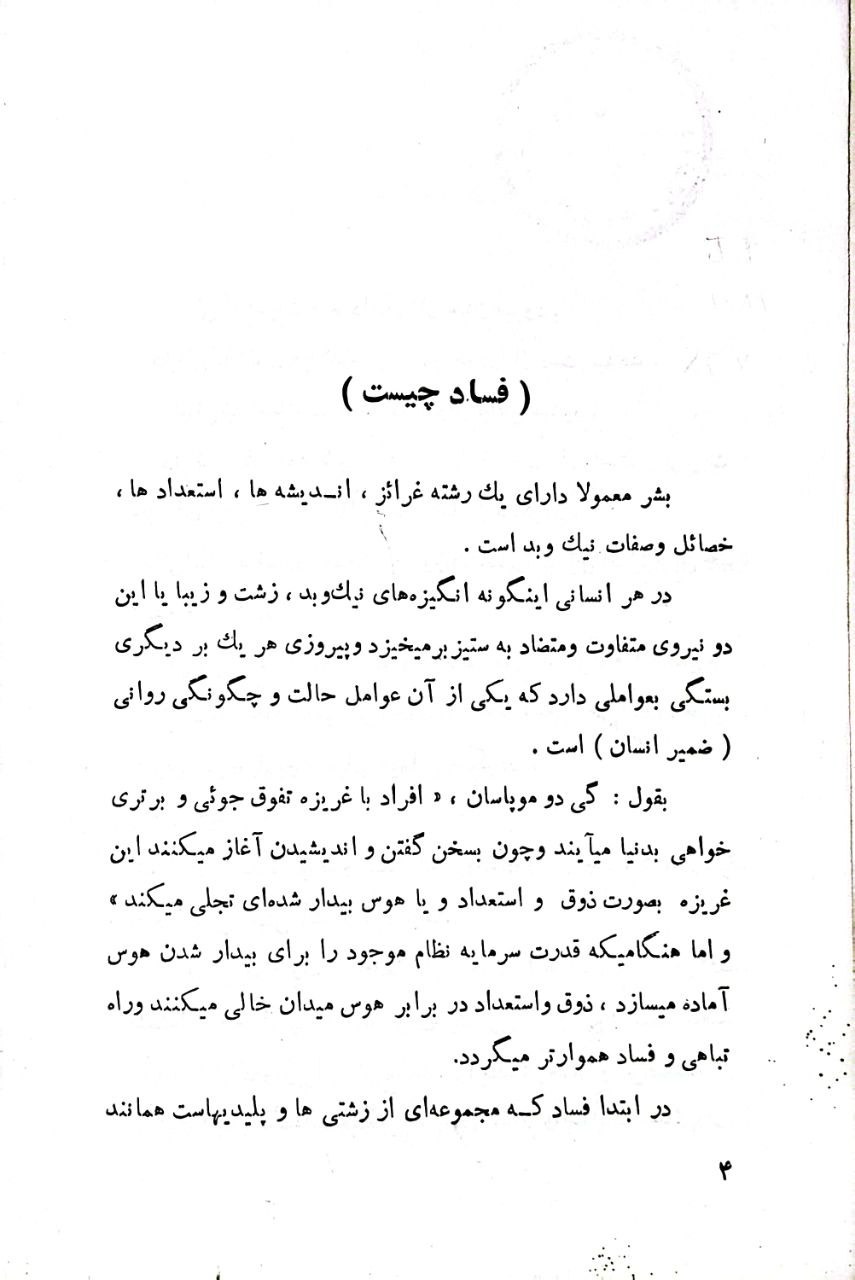 ( فساد چیست )
بشر معمولا دارای یك رشته غرائز ، اندیشه ها ، استعداد ها ،
خصائل وصفات نیك وبد است .
در هر انسانی اینگونه انگیزه‌های نیك‌وبد ، زشت و زیبا یا این
دو نیروی متفاوت ومتضاد به ستیز برمیخیزد وپیروزی هر یك بر دیگری
بستگی بعواملی دارد که یکی از آن عوامل حالت و چگونگی روانی
( ضمیر انسان ) است .
بقول : گی دو موپاسان ، « افراد با غریزه تفوق جوئی و برتری
خواهی بدنیا میآیند وچون بسخن گفتن و اندیشیدن آغاز میکنند این
غریزه بصورت ذوق و استعداد و یا هوس بیدار شده‌ای تجلی میکند »
و اما هنگامیکه قدرت سرمایه نظام موجود را برای بیدار شدن هوس
آماده میسازد ، ذوق واستعداد در برابر هوس میدان خالی میکنند وراه
تباهی و فساد هموارتر میگردد.
در ابتدا فساد کـه مجموعه‌ای از زشتی ها و پلیدیهاست همانند
۴